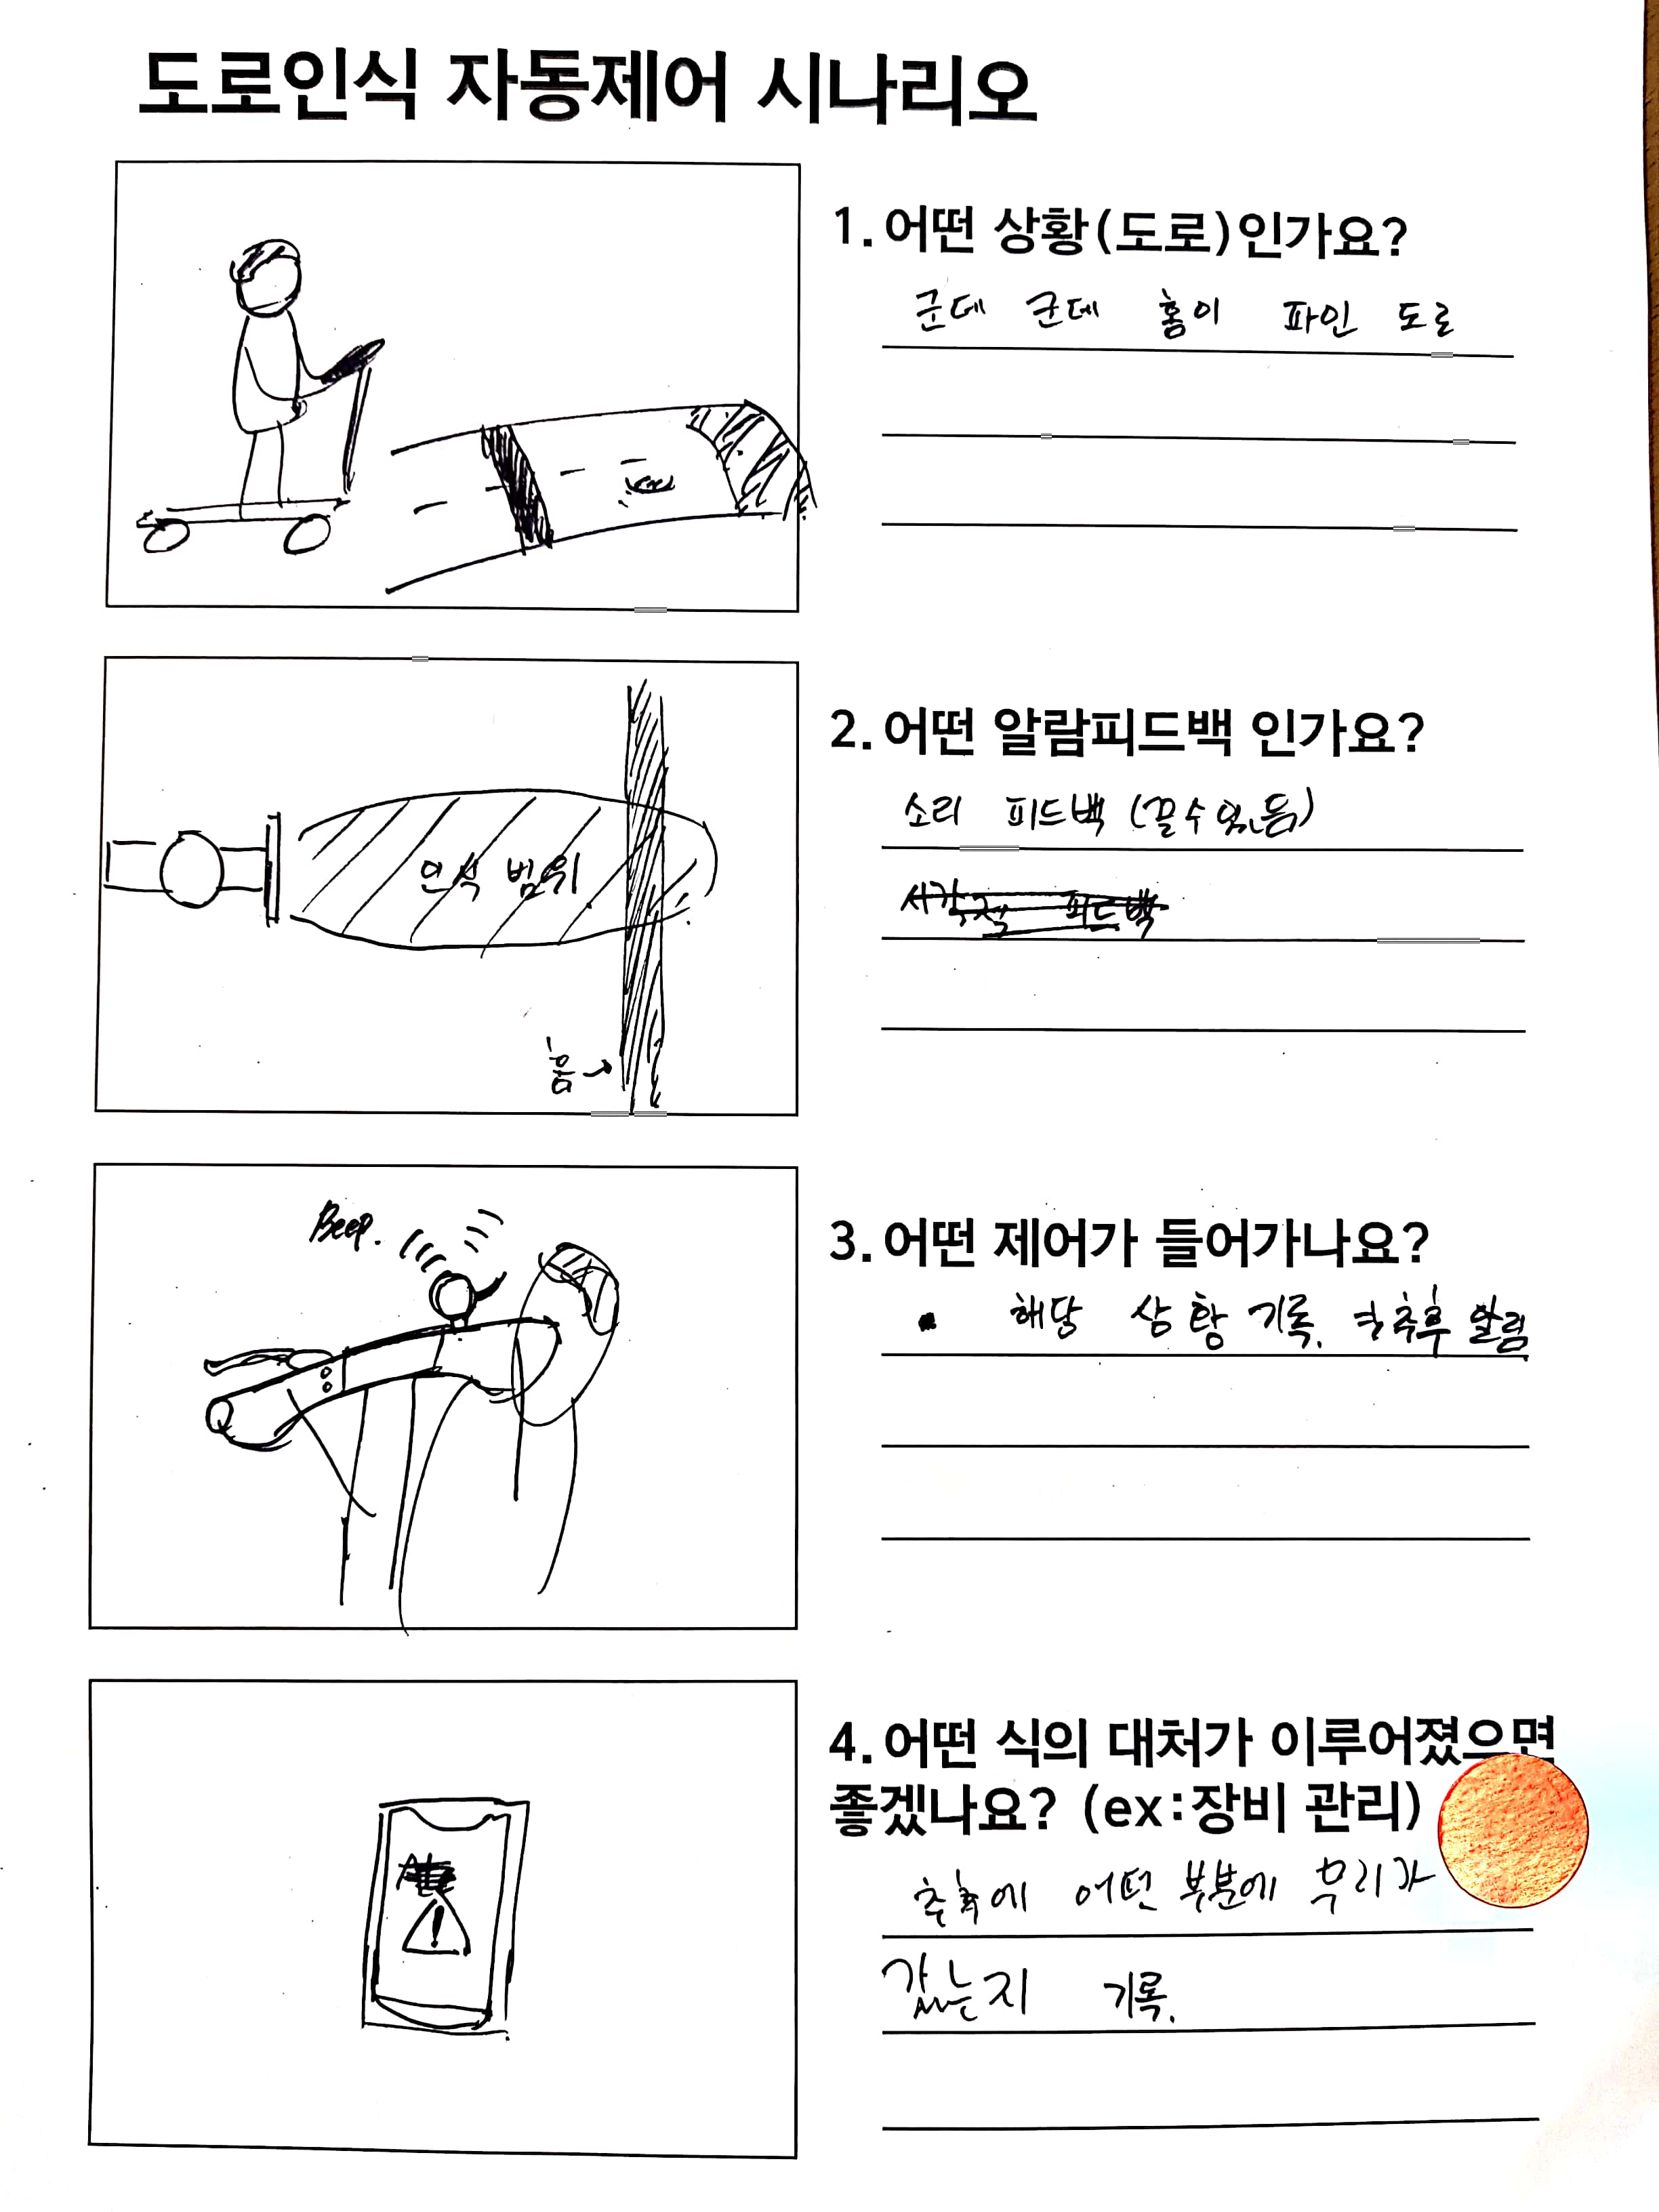 도로인식 자동제어 시나리오
1. 어떤 상황(도로)인가요?
군데 군데 홈이 파인 도로
2. 어떤 알람피드백 인가요?
소리 피드백 (끌수 있음)
시각적 피드백
인식 범위
홈→
Beep.
3. 어떤 제어가 들어가나요?
해당 상황 기록. 추후 알림
4. 어떤 식의 대처가 이루어졌으면
좋겠나요? (ex:장비 관리)
추후에 어떤 부분에 무리가
갔는지 기록.
!